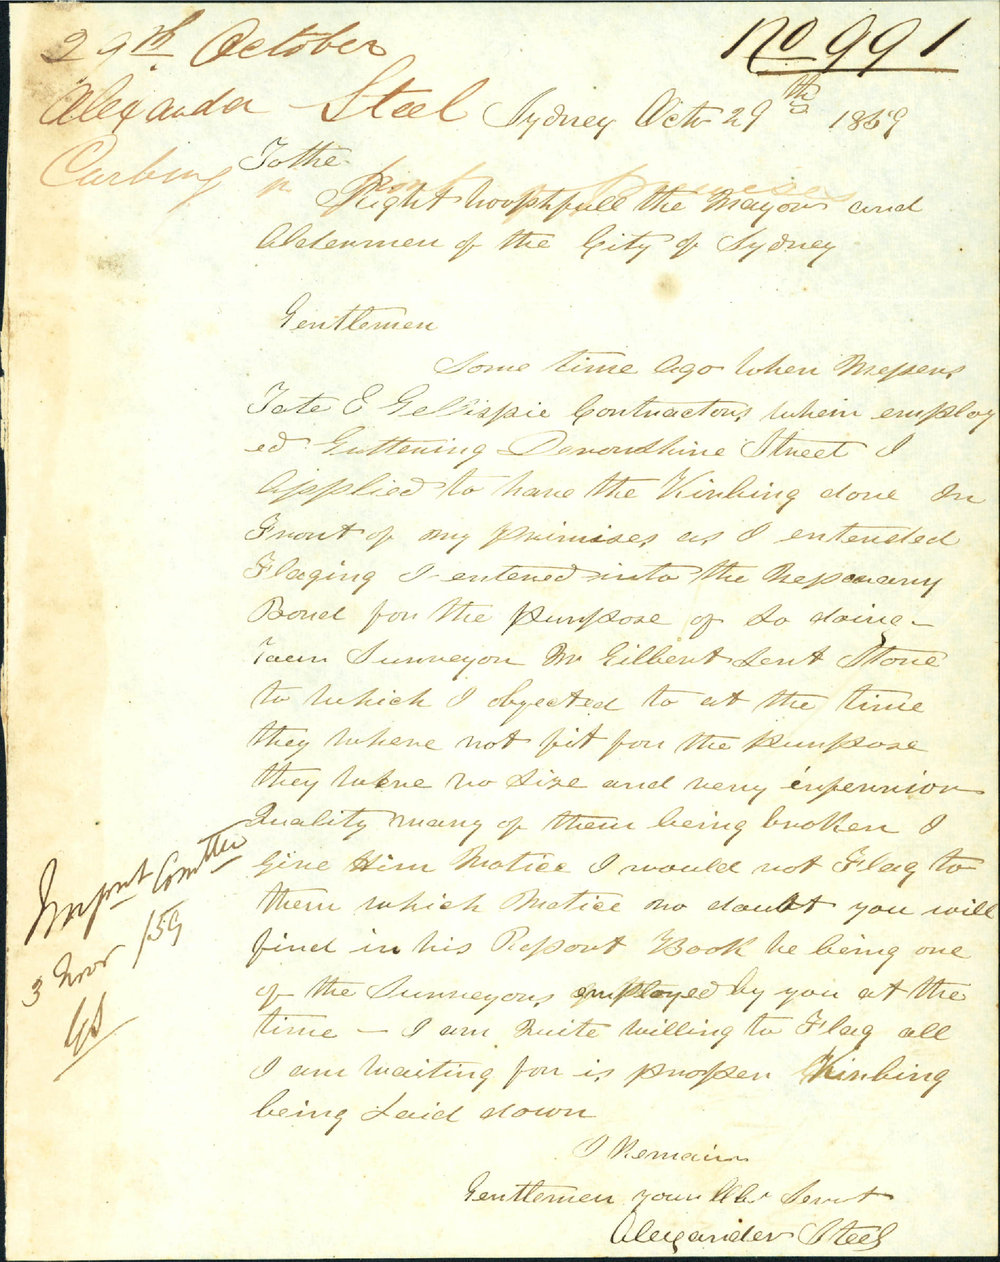 29th October
No 991
Alexander Steel
Sydney Oct 29th 1859
Curbing in front of Premises
To the
Right Worshfull the Mayor and
Aldermen of the City of Sydney
Gentlemen
Some time ago when Messers
Tate & Gellispie Contractors, whein employ
ed Guttering Devonshire Street I
Applied to have the Kirbing done In
Front of my primises, as I entended
Flaging I entered into the Nessecary
Bond for the purpose of so doing –
Town Surveyor Mr Gilbert sent Stone
to which I objected to at the time
they where not fit for the purpose
they where no size and very inferrior
Quality many of them being broken I
Give Him Notice I would not Flag to
them which Notice no doubt you will
find in his Report Book he being one
of the Surveyors employed by you at the
time – I am Quite willing to Flag all
I am waiting for is, proper Kirbing
being Laid down
I Remain
Gentlemen your Hbl Servt
Alexander Steel
Impont Comttee
3 Novr /59